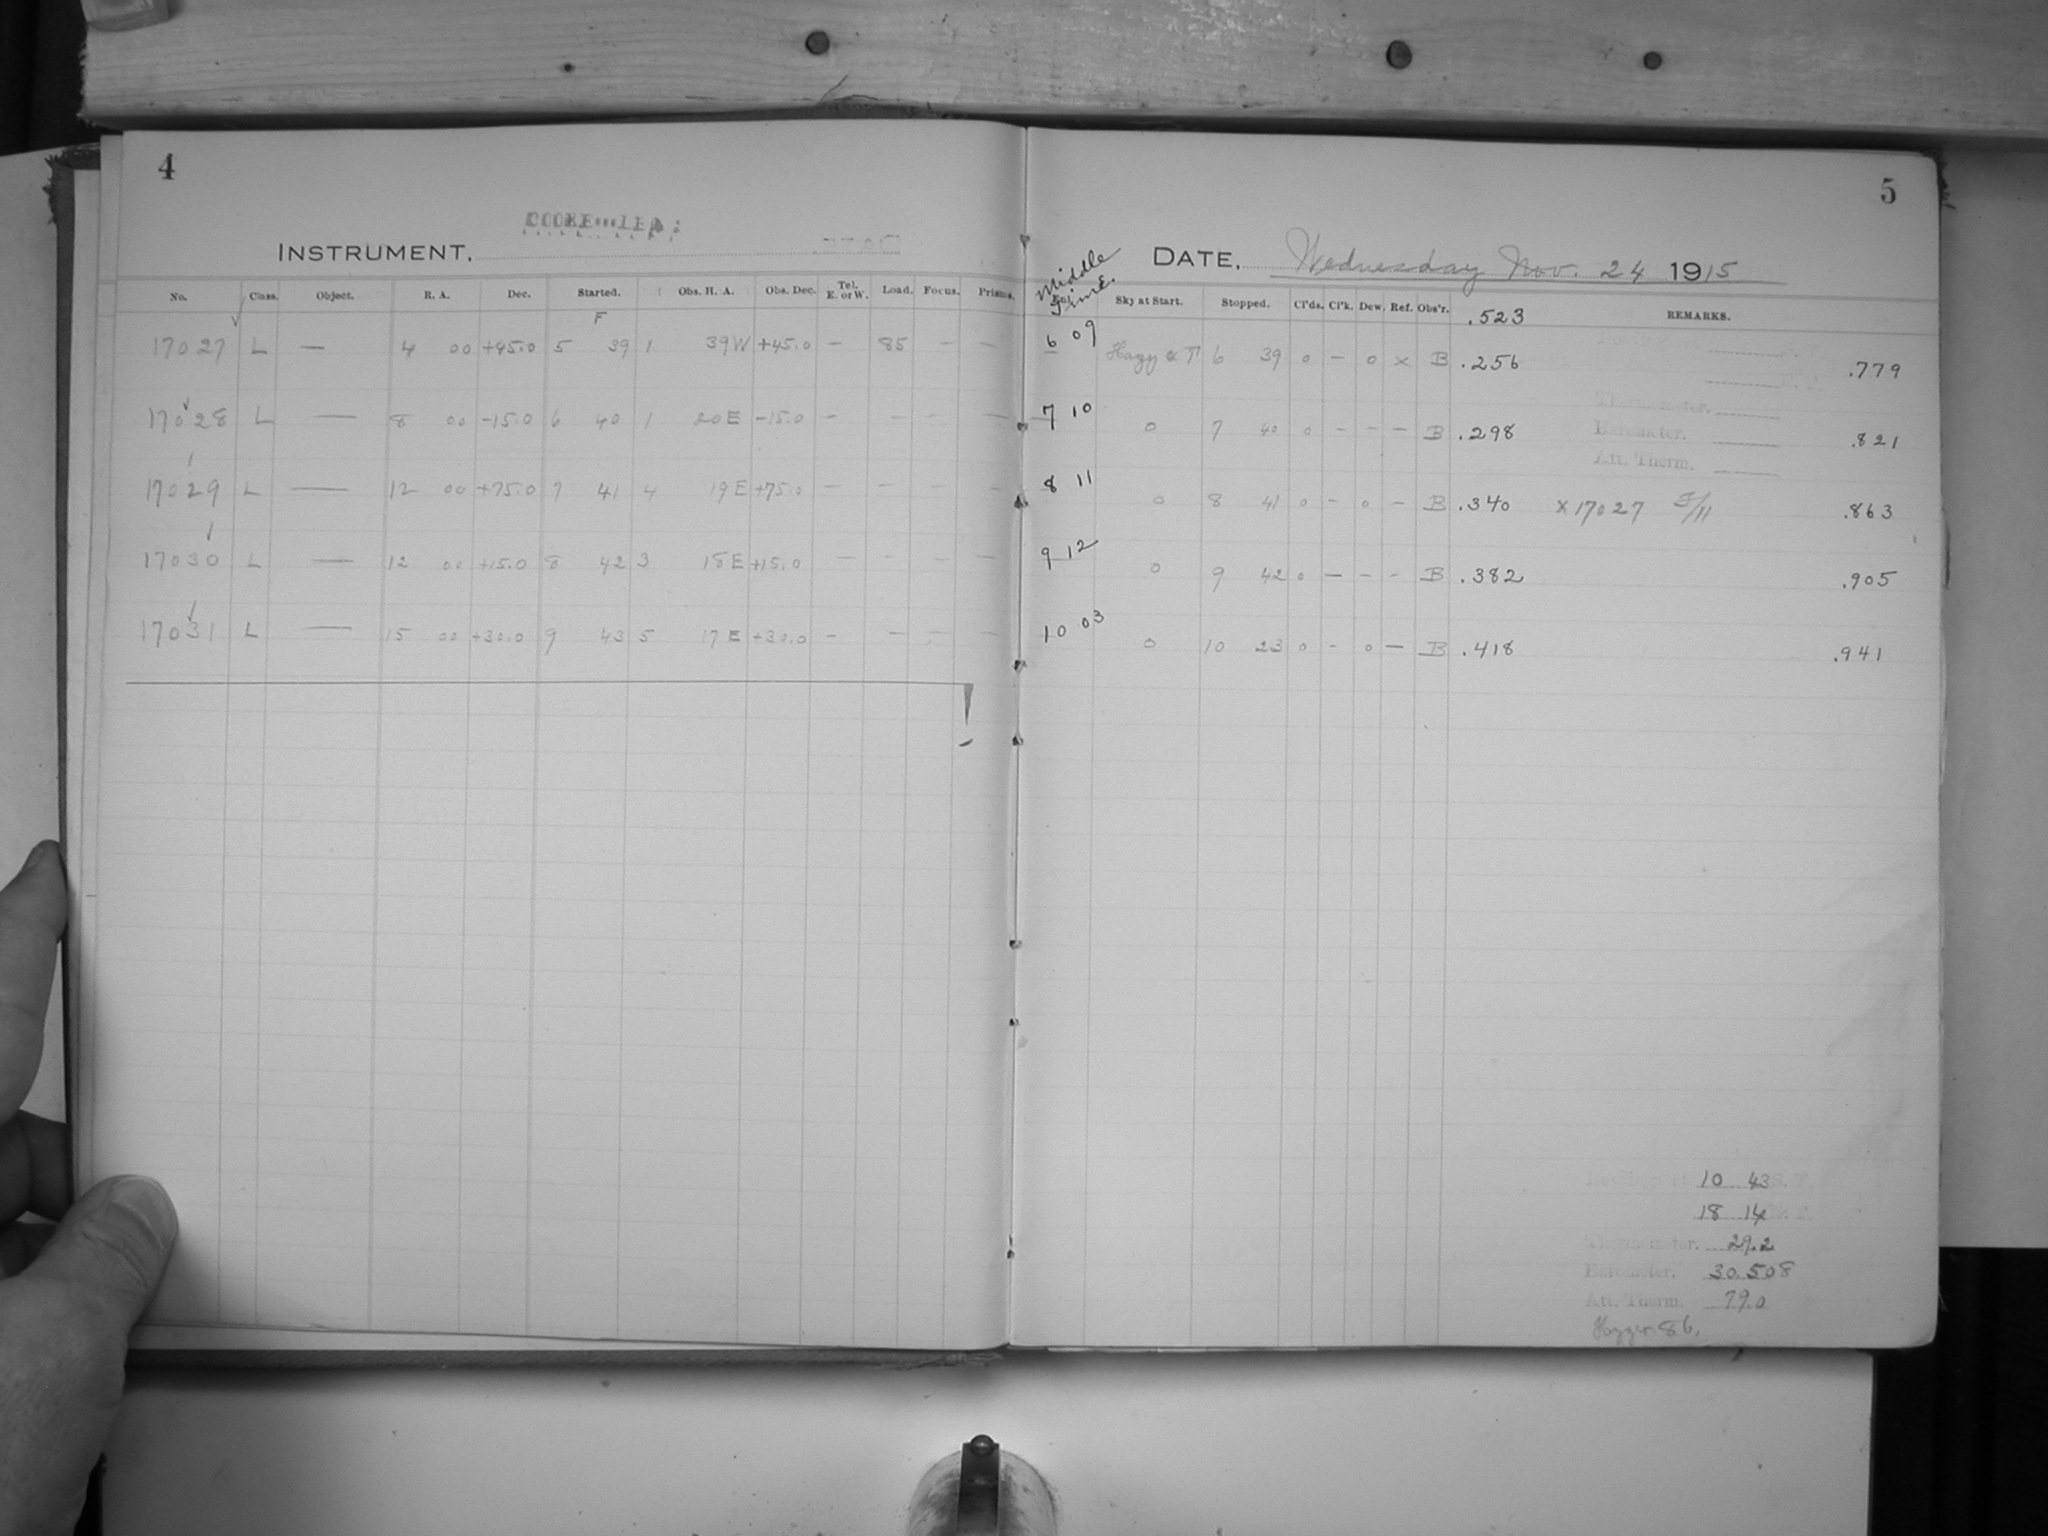 4
INSTRUMENT.
No. Class. Object. R. A. Dec. Started. Obs. H. A. Obs. Dec. Tel. E. or W. Load. Focus. Prisms.
F
17027 L — 4 00 +45.0 5 39 1 39W +45.0 — 85 — —
17028 L — 8 00 -15.0 6 40 1 20E -15.0 — — — —
17029 L — 12 00 +75.0 7 41 4 19E +75.0 — — — —
17030 L — 12 00 +15.0 8 42 3 18E +15.0 — — — —
17031 L — 15 00 +30.0 9 43 5 17E +30.0 — — — —
5
DATE. Wednesday Nov. 24 1915
Middle Time.
Sky at Start. Stopped. Cl'ds. Cl'k. Dew. Ref. Obs'r. .523 REMARKS.
6 09 Hazy & T 6 39 0 — 0 x B .256 .779
7 10 0 7 40 0 - - - B .298 .821
8 11 0 8 41 0 - 0 - B .340 x 17027 .863
9 12 0 9 42 0 — - - B .382 .905
10 03 0 10 23 0 - 0 — B .418 .941
Thermometer.
Barometer.
Att. Therm.
10 43
18 14
Thermometer. 29.2
Barometer. 30.508
Att. Therm. 79.0
86.